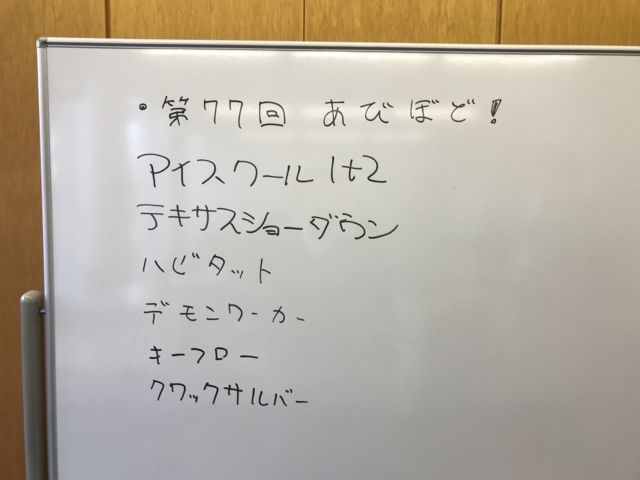 ・第77回 あびぼど!
アイスクール1+2
テキサスショーダウン
ハビタット
デモンワーカー
キーフロー
クワックサルバー